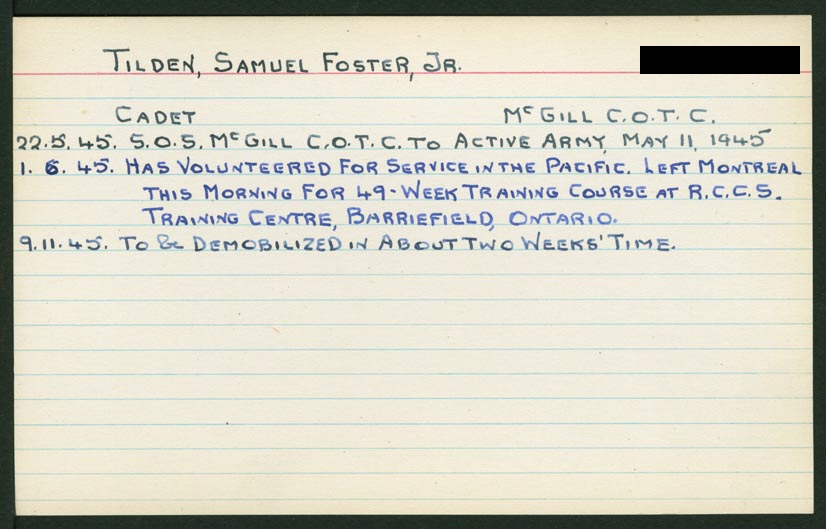 TILDEN, SAMUEL FOSTER, JR.
CADET McGILL C.O.T.C.
22.5.45. S.O.S. McGILL C.O.T.C. TO ACTIVE ARMY, MAY 11, 1945
1.6.45. HAS VOLUNTEERED FOR SERVICE IN THE PACIFIC. LEFT MONTREAL
THIS MORNING FOR 49-WEEK TRAINING COURSE AT R.C.C.S.
TRAINING CENTRE, BARRIEFIELD, ONTARIO.
9.11.45. TO Be DEMOBILIZED IN ABOUT TWO WEEKS' TIME.